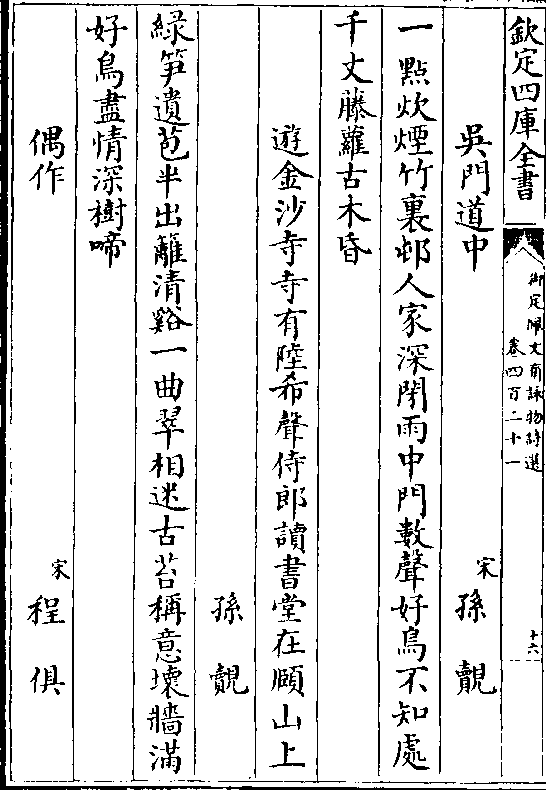 欽定四庫全書
御定佩文齋詠物詩選
卷四百二十一
十六
吳門道中 宋 孫覿
一點炊煙竹裏邨人家深閉雨中門數聲好鳥不知處
千丈藤蘿古木昏
遊金沙寺寺有陸希聲侍郎讀書堂在頤山上
孫覿
綠笋遺苞半出籬清谿一曲翠相迷古苔稱意壞牆滿
好鳥盡情深樹啼
偶作 宋 程俱